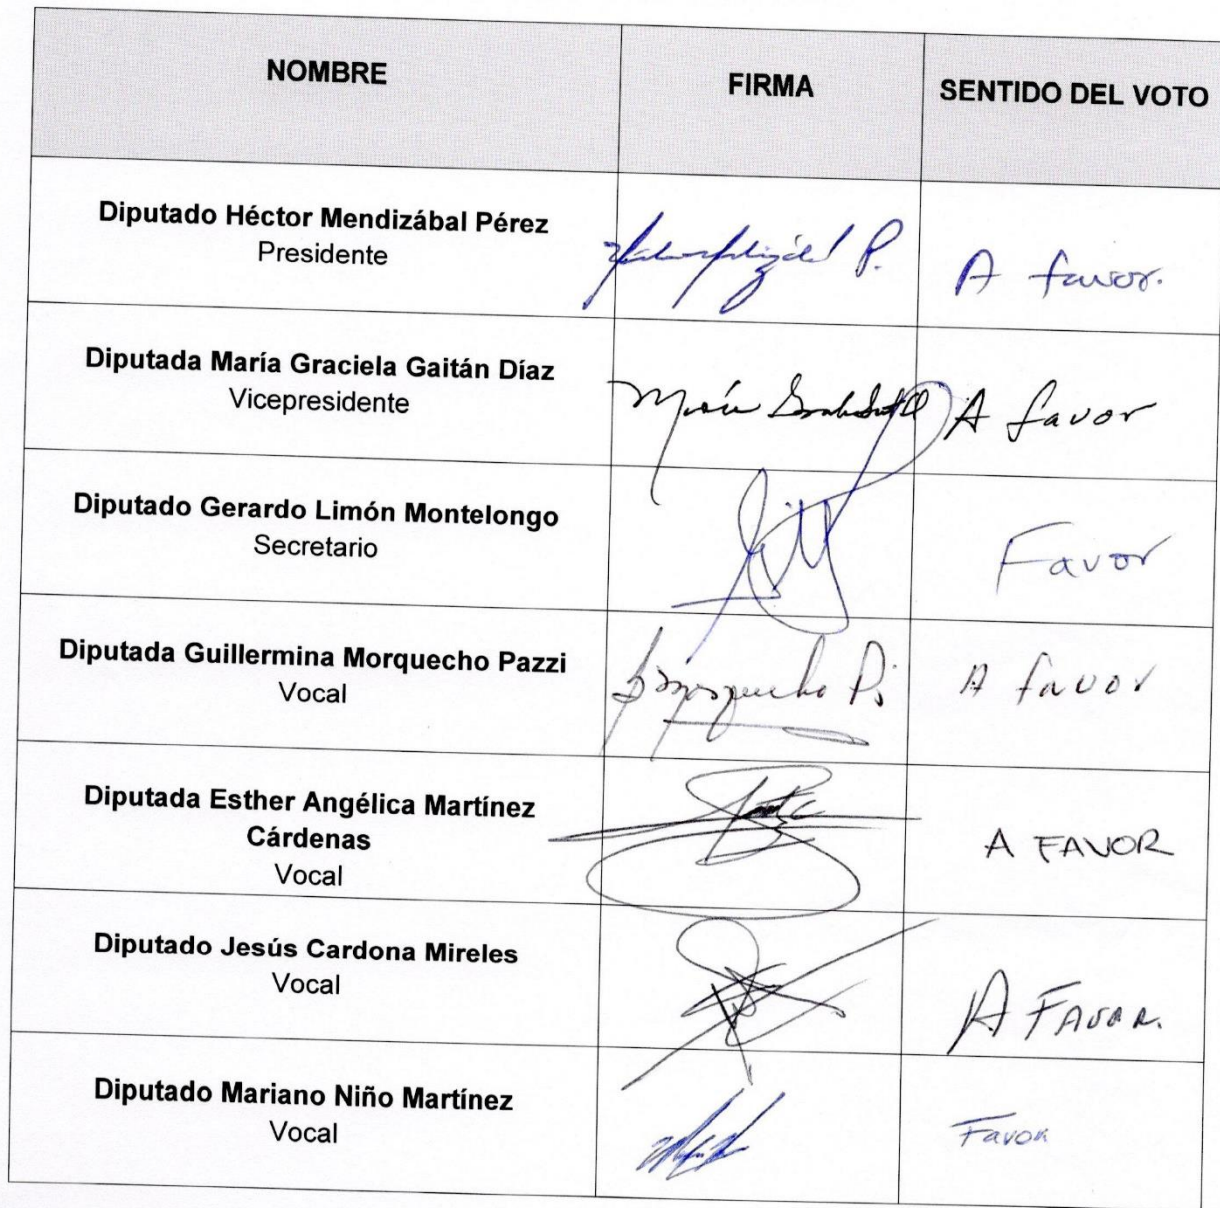 NOMBRE FIRMA SENTIDO DEL VOTO
Diputado Héctor Mendizábal Pérez
Presidente
P. A favor.
Diputada María Graciela Gaitán Díaz
Vicepresidente
María A favor
Diputado Gerardo Limón Montelongo
Secretario
Favor
Diputada Guillermina Morquecho Pazzi
Vocal
Morquecho P. A favor
Diputada Esther Angélica Martínez
Cárdenas
Vocal
A FAVOR
Diputado Jesús Cardona Mireles
Vocal
A FAVOR.
Diputado Mariano Niño Martínez
Vocal
Favor